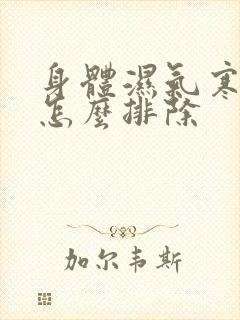 身體濕氣寒
怎麼排除
加尔韦斯